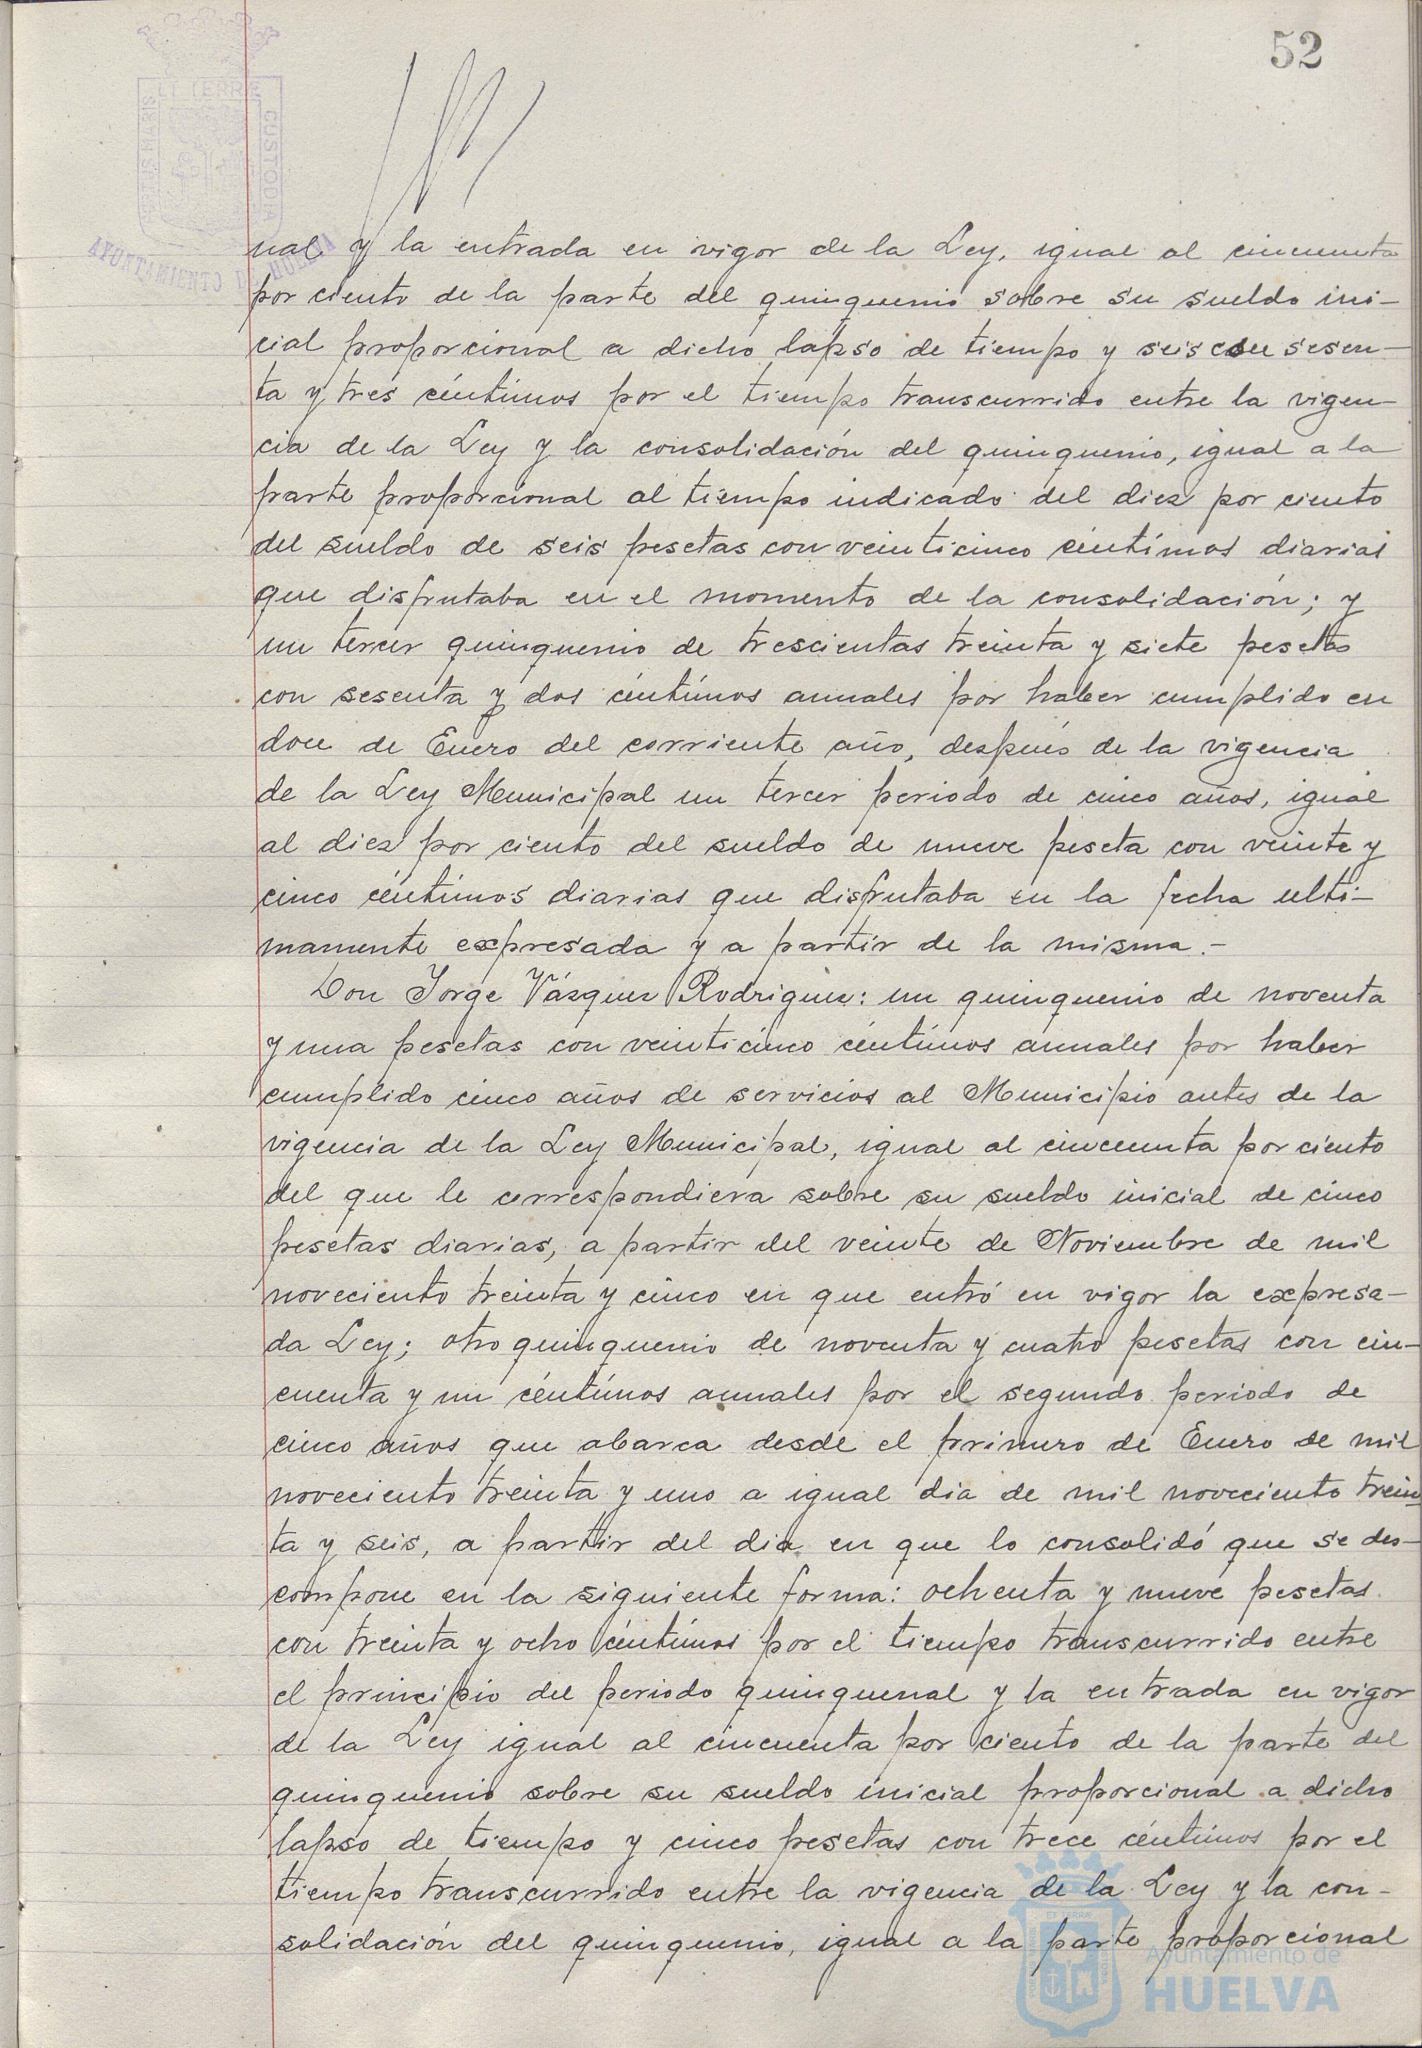 52
PORTUS MARIS ET TERRÆ CUSTODIA
AYUNTAMIENTO DE HUELVA
nal y la entrada en vigor de la Ley, igual al cincuenta
por ciento de la parte del quinquenio sobre su sueldo ini-
cial proporcional a dicho lapso de tiempo y seis con sesen-
ta y tres céntimos por el tiempo transcurrido entre la vigen-
cia de la Ley y la consolidación del quinquenio, igual a la
parte proporcional al tiempo indicado del diez por ciento
del sueldo de seis pesetas con veinticinco céntimos diarias
que disfrutaba en el momento de la consolidación; y
un tercer quinquenio de trescientas treinta y siete pesetas
con sesenta y dos céntimos anuales por haber cumplido en
doce de Enero del corriente año, después de la vigencia
de la Ley Municipal un tercer periodo de cinco años, igual
al diez por ciento del sueldo de nueve peseta con veinte y
cinco céntimos diarias que disfrutaba en la fecha ulti-
mamente expresada y a partir de la misma.-
Don Jorge Vázquez Rodriguez: un quinquenio de noventa
y una pesetas con veinticinco céntimos anuales por haber
cumplido cinco años de servicios al Municipio antes de la
vigencia de la Ley Municipal, igual al cincuenta por ciento
del que le correspondiera sobre su sueldo inicial de cinco
pesetas diarias, a partir del veinte de Noviembre de mil
noveciento treinta y cinco en que entró en vigor la expresa-
da Ley; otro quinquenio de noventa y cuatro pesetas con cin-
cuenta y un céntimos anuales por el segundo periodo de
cinco años que abarca desde el primero de Enero de mil
noveciento treinta y uno a igual dia de mil noveciento trein
ta y seis, a partir del dia en que lo consolidó que se des-
compone en la siguiente forma: ochenta y nueve pesetas
con treinta y ocho céntimos por el tiempo transcurrido entre
el principio del periodo quinquenal y la entrada en vigor
de la Ley igual al cincuenta por ciento de la parte del
quinquenio sobre su sueldo inicial proporcional a dicho
lapso de tiempo y cinco pesetas con trece céntimos por el
tiempo transcurrido entre la vigencia de la Ley y la con-
solidación del quinquenio, igual a la parte proporcional
Ayuntamiento de
HUELVA